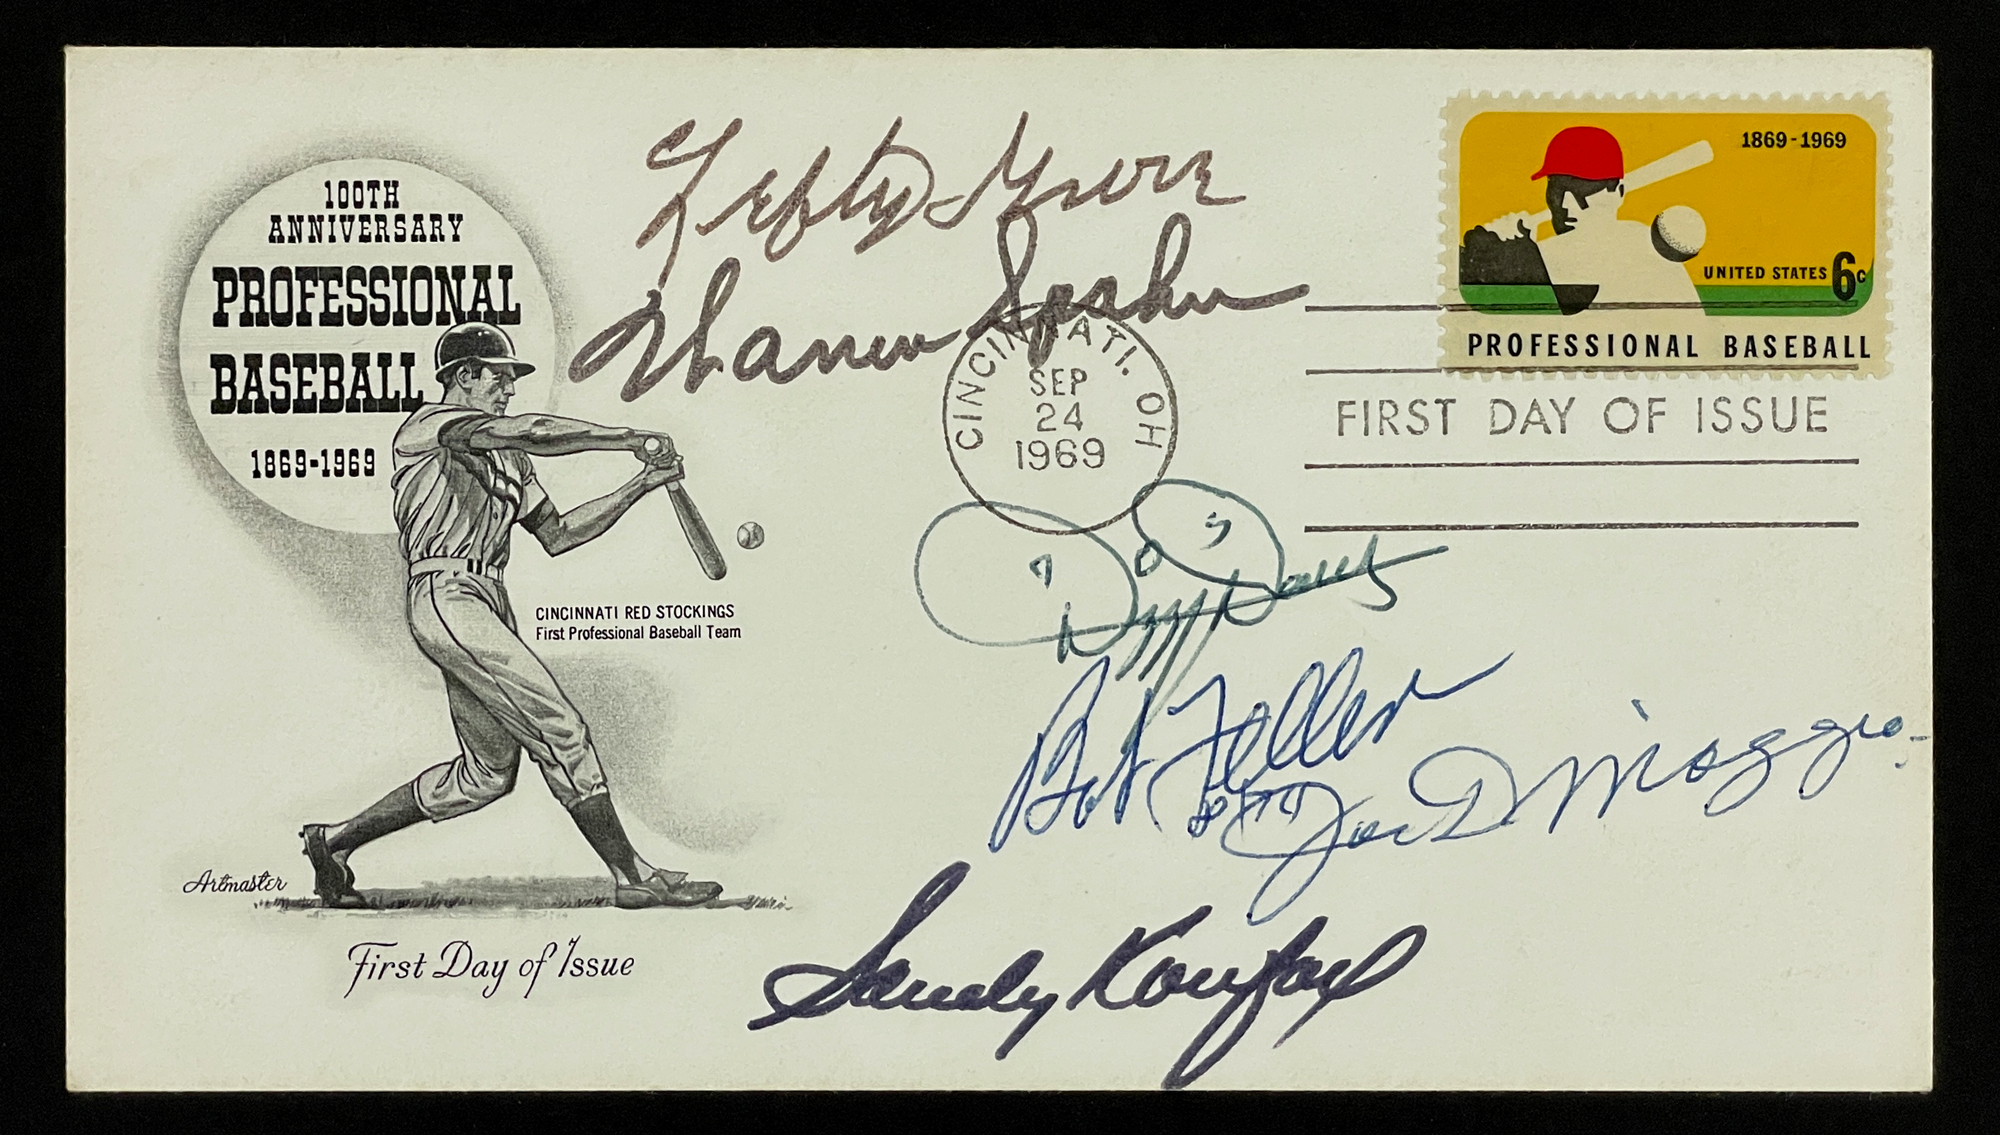 100TH
ANNIVERSARY
PROFESSIONAL
BASEBALL
1869-1969
CINCINNATI RED STOCKINGS
First Professional Baseball Team
Artmaster
First Day of Issue
Lefty Grove
Warren Spahn
CINCINNATI, OH
SEP
24
1969
1869-1969
UNITED STATES 6c
PROFESSIONAL BASEBALL
FIRST DAY OF ISSUE
Dizzy Dean
Bob Feller
Joe DiMaggio
Sandy Koufax